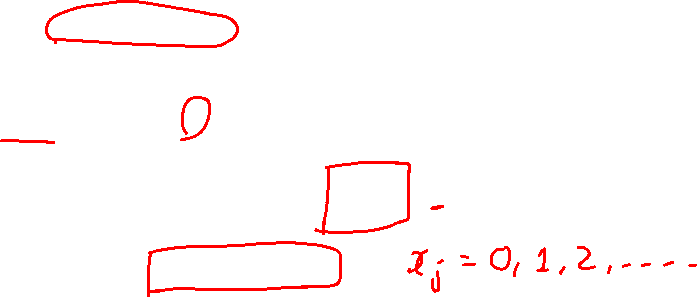 x_j = 0, 1, 2, .....